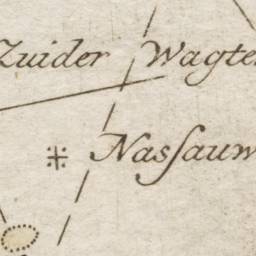 Zuider Wagte
Nasſauw